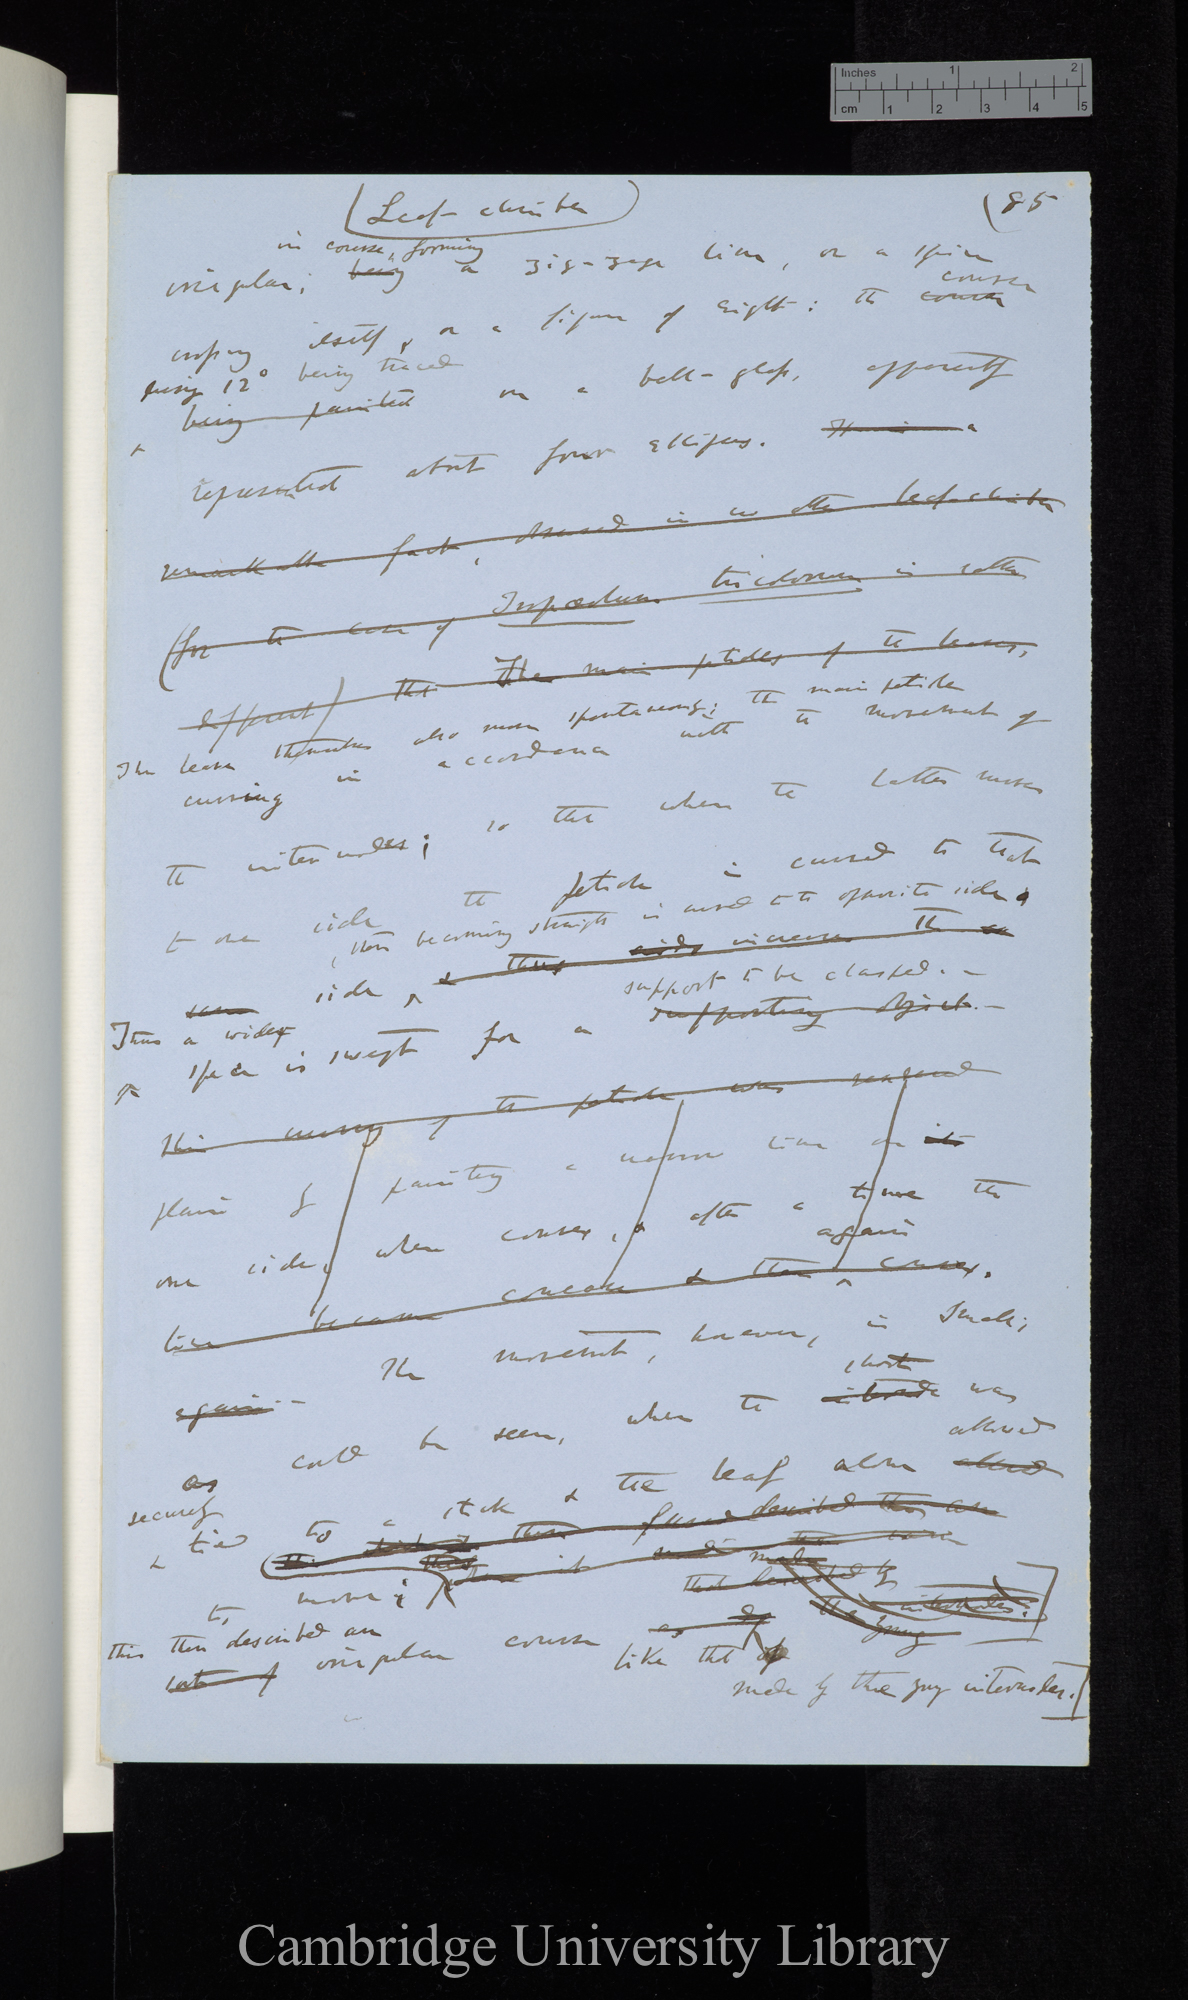 Inches 1 2
cm 1 2 3 4 5
(Leaf-climber)
(85
in course, forming
irregular; being a zig-zag line, or a spire
course
crossing itself, or a figure of eight: the course
being traced
during 12°
being painted on a bell-glass, apparently
represented about four ellipses. This is a
remarkable fact, observed in no other leaf-climber
(for the case of Tropæolum tricolorum is rather
different) that the main petioles of the leaves,
The leaves themselves also move spontaneously; the main petiole
curving in accordance with the movement of
the internodes; so that when the latter moves
to one side the petiole is curved to that
, then becoming straight is curved to the opposite side.
same side & thus aids increases the
support to be clasped. —
Thus a wider
space is swept for a supporting object. —
This curving of the petiole was
plain by painting a narrow line on its
one side, when convex, & after a time the
again
line became concave & then convex.
again. — The movement, however, is small;
short
as could be seen, when the was
allowed
securely
tied to a stick & the leaf alone
described then an
to move;
this then described an
irregular course as
like that of
the young internodes;
made by the young internodes.]
Cambridge University Library